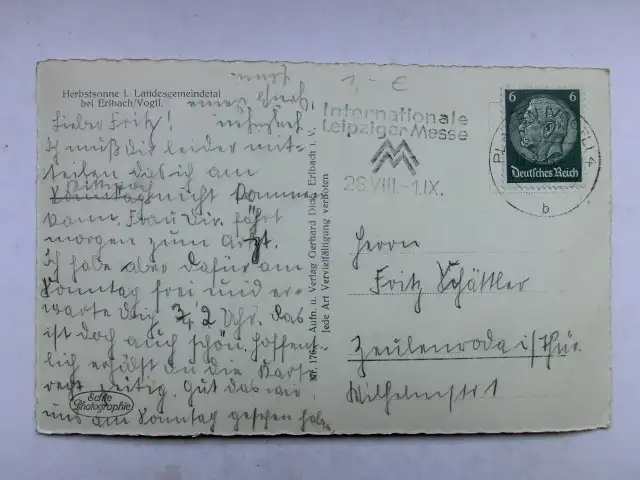 Herbstsonne i. Landesgemeindetal
bei Erlbach/Vogtl.
Lieber Fritz!
Ich muß dir leider mit-
teilen das ich am
Mittwoch
nicht kommen
kann. Frau Dir. fährt
morgen zum Arzt.
Ich habe aber dafür am
Sonntag frei und er-
warte dich 3/4 2 Uhr. Das
ist doch auch schön. Hoffent-
lich erhälst du die Karte
recht zeitig. Gut das wir
uns am Sonntag gesehen hab.
Echte
Photographie
Aufn. u. Verlag Gerhard Dick, Erlbach i. V.
Jede Art Vervielfältigung verboten
1,- €
Internationale
Leipziger Messe
MM
28.VIII.-1.IX.
6 6
Deutsches Reich
b
Herrn
Fritz Schättler
Zeulenroda i/Thür.
Wilhelmstr 1